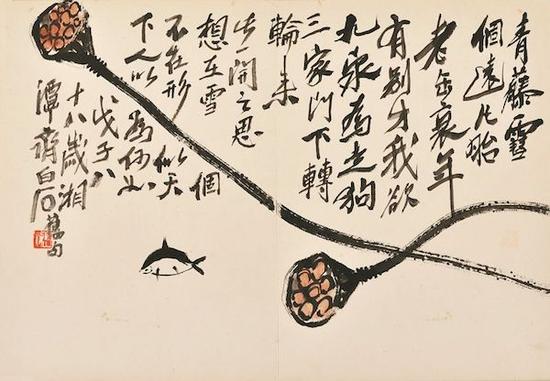 青藤雪
個遠凡胎
老缶衰年
有別才我欲
九泉為走狗
三家門下轉
輪來
此一開之思
想雪個
不在形似天
下人以為何如
戊子八
十八歲湘
潭齊白石
舊句